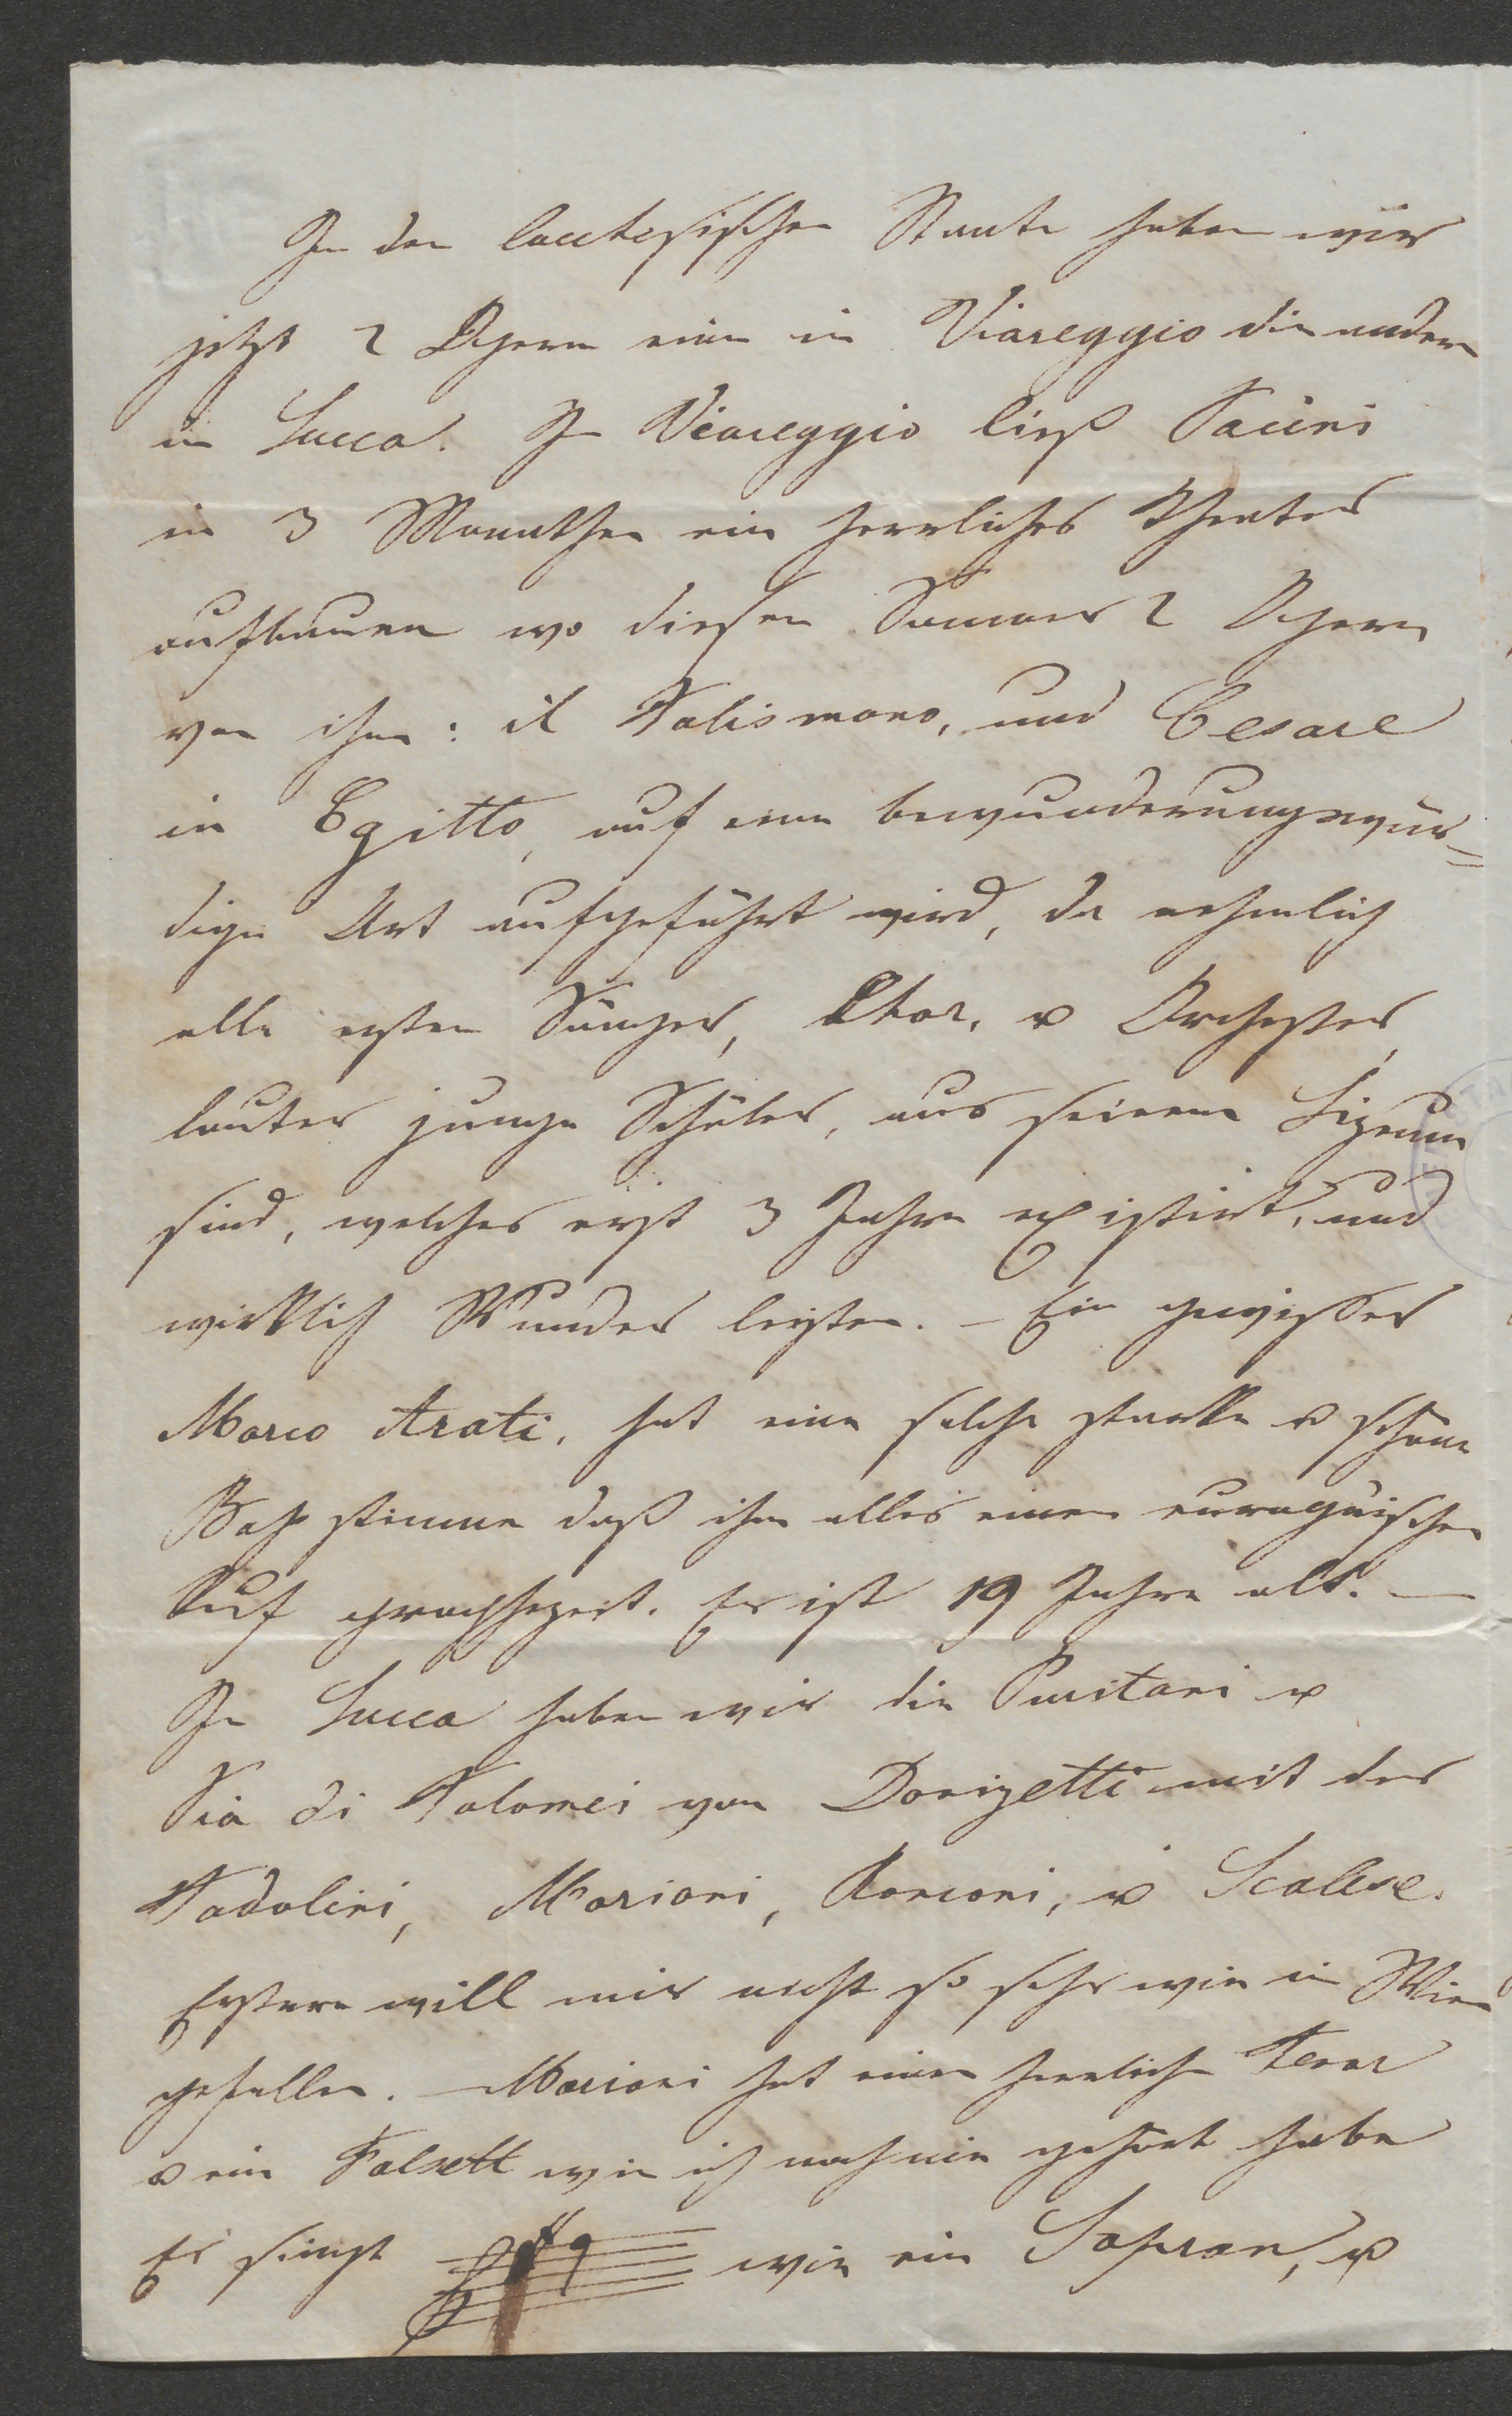 In den lucchesischen Staate haben wir
jetzt 2 Opern eine in Viareggio die andere
in Lucca. In Viareggio ließ Pacini
in 3 Monathen ein herrliches Theater
aufbauen wo diesen Somer 2 Opern
von ihm: il Talismano, und Cesare
in Egitto, auf eine bewunderungswür=
dige Art aufgeführt wird, da nehmlich
alle ersten Sänger, Chor, u Orchester,
lauter junge Schüler, aus seinem Lizeum
sind, welches erst 3 Jahre existirt, und
wirklich Wunder leisten. – Ein gewisser
Marco Arati, hat eine solche starke u schöne
Baßstimme daß ihm alles einen europäischen
Ruf prophezeit. Er ist 19 Jahre alt. –
In Lucca haben wir die Puritani u
Pia di Tolomei von Donizetti mit der
Tadolini, Moriani, Ronconi, u Scalese.
Erstere will mir nicht so sehr wie in Wien
gefallen. – Moriani hat einen herrlichen Tenor
u ein Falsett wie ich noch nie gehört habe
Er singt wie ein Sopran, u